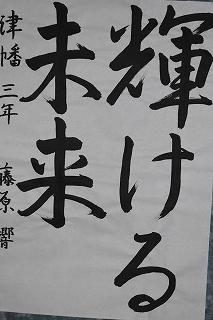 輝ける
未来
津幡 三年 藤原 響